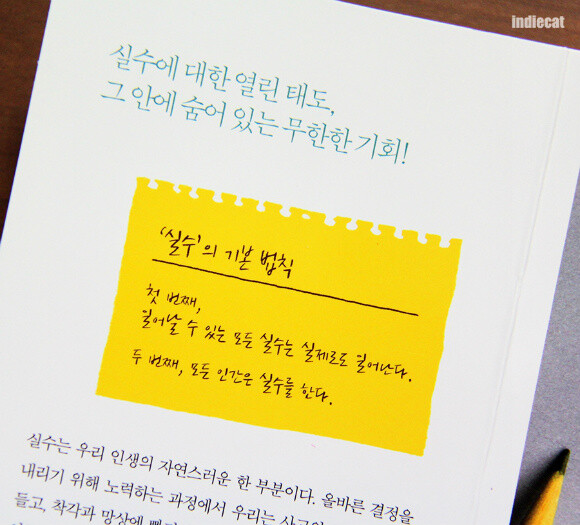 indiecat
실수에 대한 열린 태도,
그 안에 숨어 있는 무한한 기회!
'실수'의 기본 법칙
첫 번째,
일어날 수 있는 모든 실수는 실제로도 일어난다.
두 번째, 모든 인간은 실수를 한다.
실수는 우리 인생의 자연스러운 한 부분이다. 올바른 결정을
내리기 위해 노력하는 과정에서 우리는
들고, 착각과 망상에